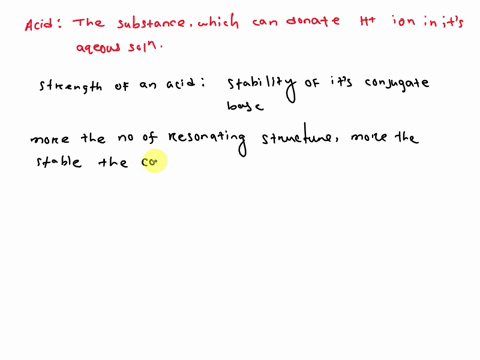 Acid: The substance, which can donate H+ ion in it's
aqeous solⁿ.
strength of an acid: stability of it's conjugate
base
more the no of resonating structure, more the
stable the co